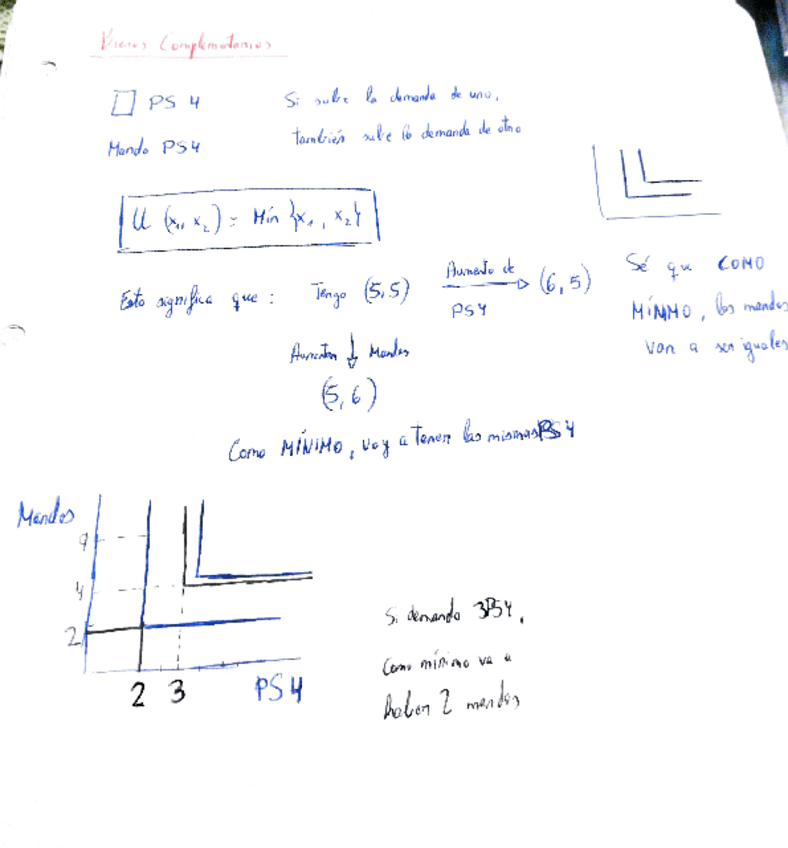 Bienes Complementarios
PS 4
Si sube la demanda de uno,
también sube la demanda de otro
Mando PS4
U (x₁, x₂) = Min {x₁, x₂}
Esto significa que : Tengo (5,5) Aumento de PS4 (6,5)
Sé que COMO
MÍNIMO, los mandos
van a ser iguales
Aumentan Mandos
(5,6)
Como MÍNIMO, voy a Tener las mismas PS4
Mandos
9
4
2
2 3 PS4
Si demando 3PS4,
Como mínimo va a
haber 2 mandos